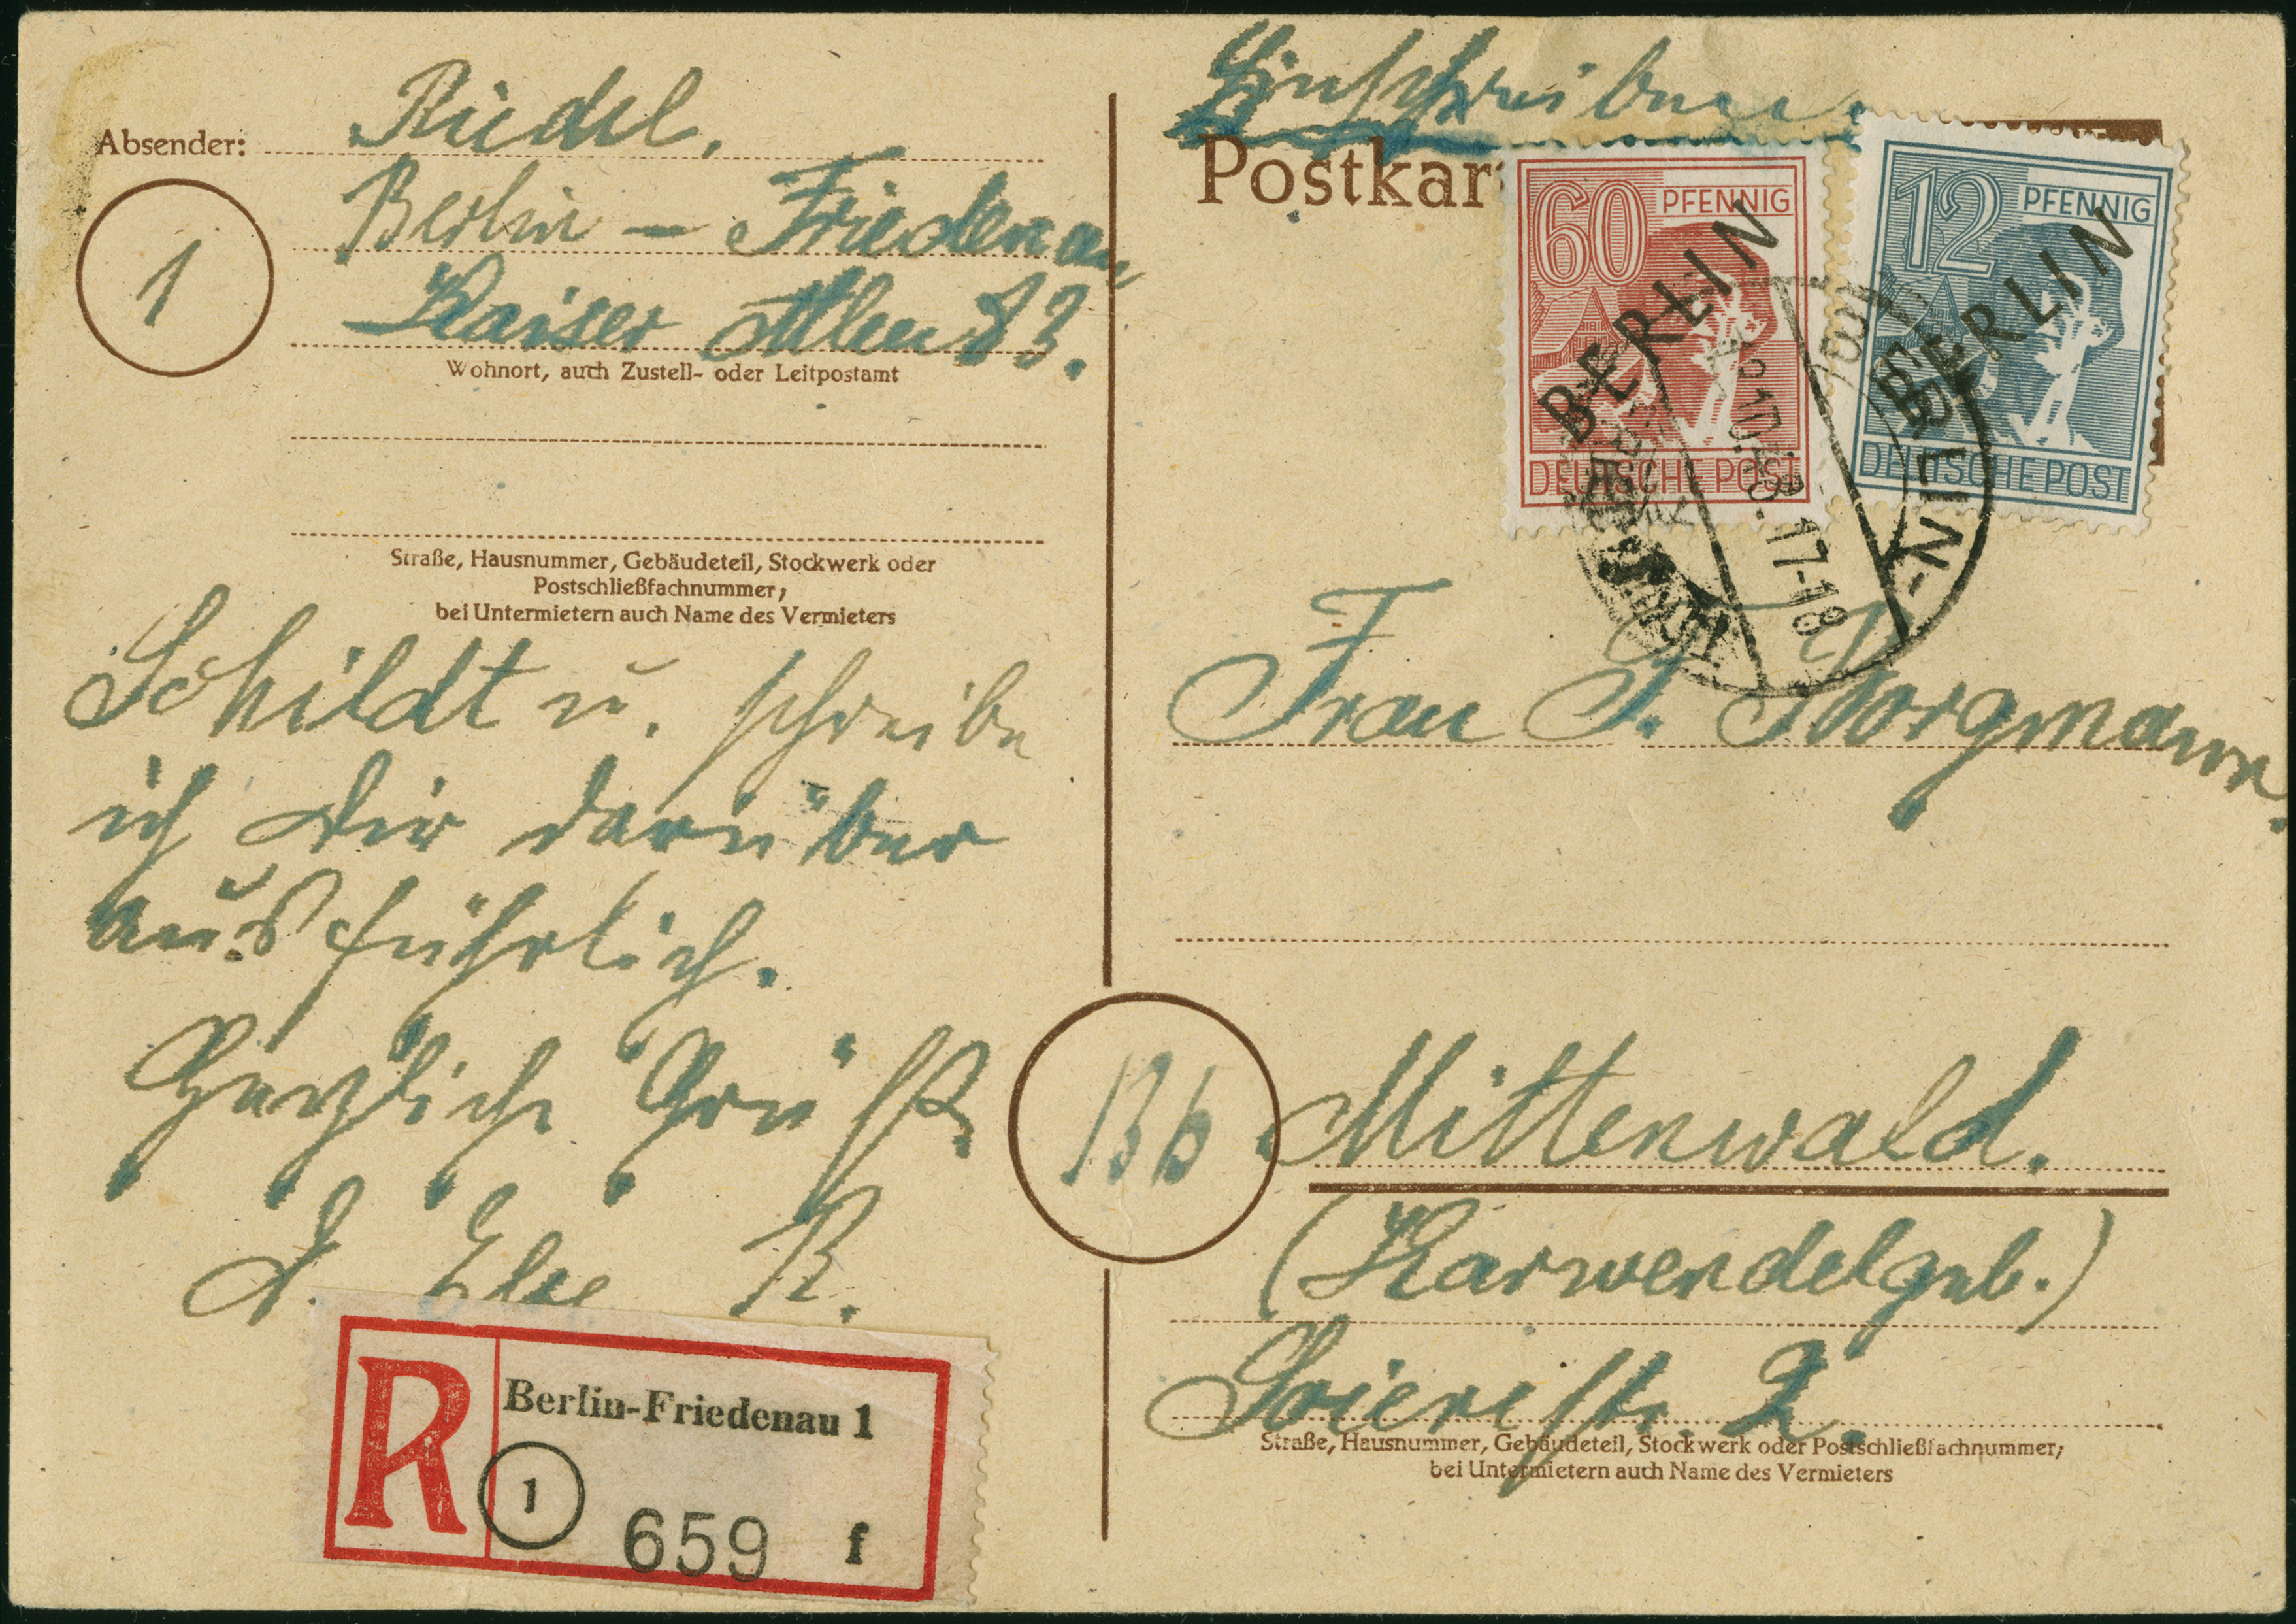 Einschreiben.
Postkar
Absender: Riedel,
Berlin – Friedenau
Kaiser Allee 83.
1
Wohnort, auch Zustell- oder Leitpostamt
Straße, Hausnummer, Gebäudeteil, Stockwerk oder
Postschließfachnummer;
bei Untermietern auch Name des Vermieters
Schildt u. schreibe
ich Dir darüber
ausführlich.
Herzliche Grüße
D. Else R.
R
Berlin-Friedenau 1
1
659 f
60 PFENNIG
BERLIN
DEUTSCHE POST
12 PFENNIG
BERLIN
DEUTSCHE POST
BERLIN-
10.48.17-18
Frau F. Borgmann.
13b Mittenwald.
(Karwendelgeb.)
Soiernstr. 2.
Straße, Hausnummer, Gebäudeteil, Stockwerk oder Postschließfachnummer;
bei Untermietern auch Name des Vermieters